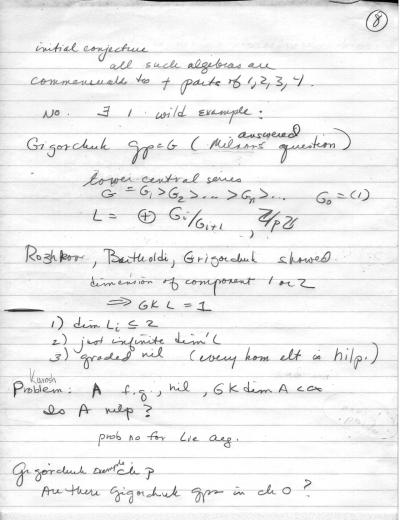 8
initial conjecture
all such algebras are
commensurable to + parts of 1, 2, 3, 4.
No. ∃ 1 wild example:
answered
Grigorchuk gp = G (Milnor's question)
lower central series
G = G₁ > G₂ > ... > Gₙ > ... G₀ = (1)
L = ⊕ Gᵢ/Gᵢ₊₁ , ℤ/pℤ
Rozhkov, Bartholdi, Grigorchuk showed
dimension of component 1 or 2
⇒ GK L = 1
1) dim Lᵢ ≤ 2
2) just infinite dim'l
3) graded nil (every hom elt is nilp.)
Kurosh
Problem: A f.g., nil, GK dim A < ∞
Is A nilp?
prob no for Lie alg.
Grigorchuk example ch p
Are there Gigorchuk gps in ch 0?